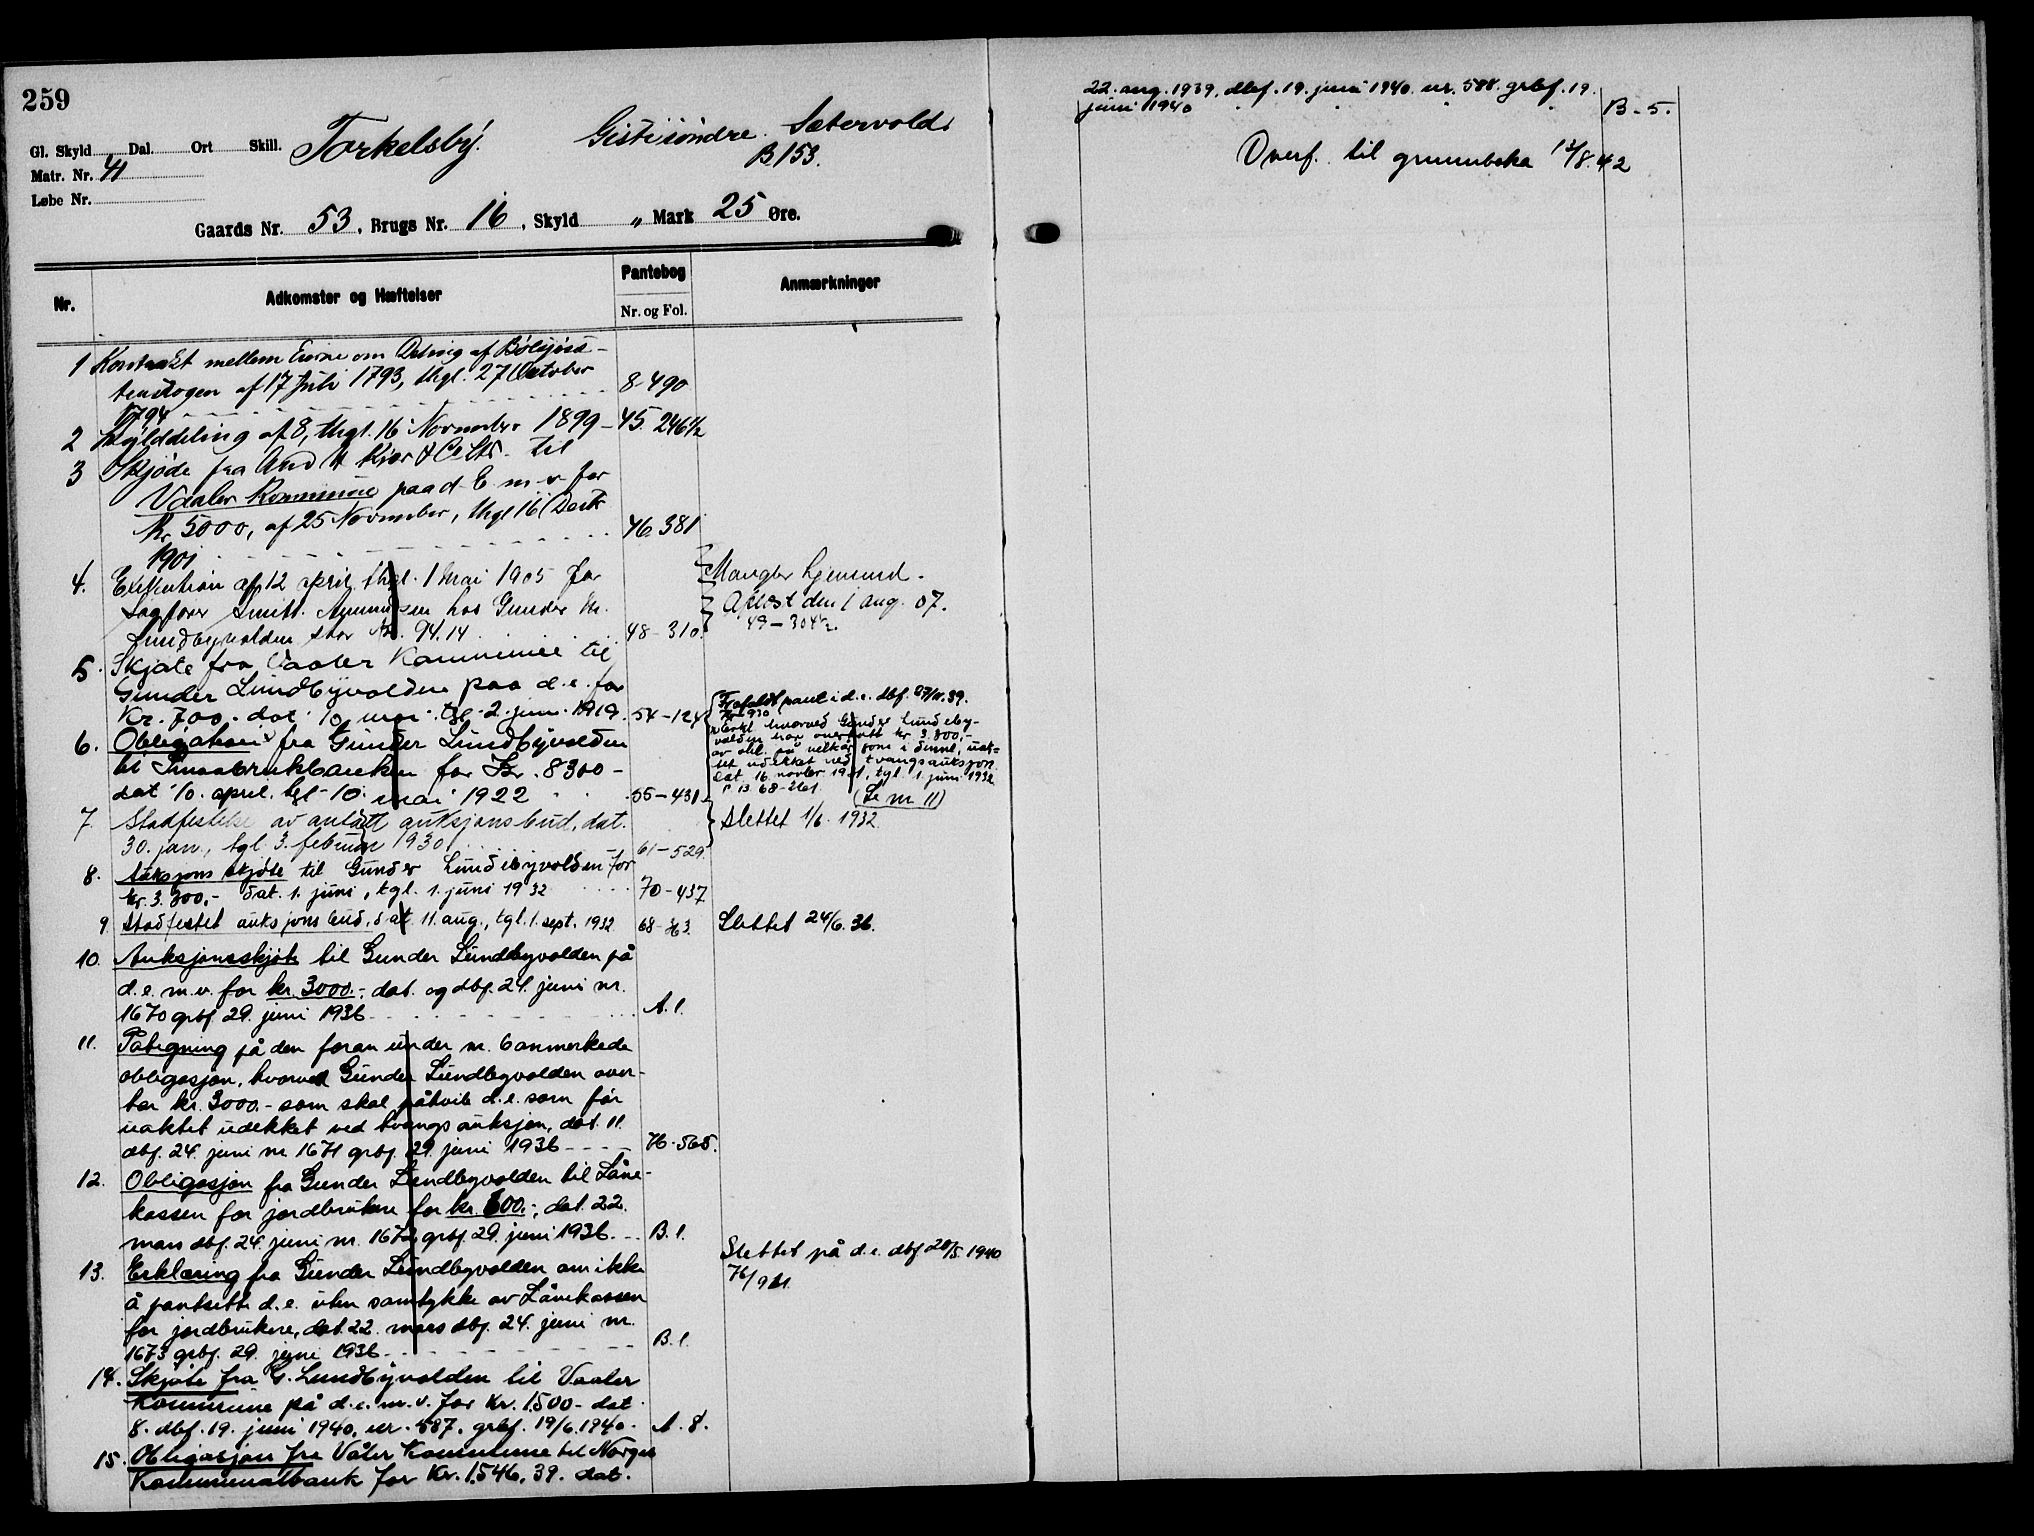 259
Gl. Skyld Dal. Ort Skill.
Torkelsby.
Gistisöndre Sætervold
B 153.
Matr. Nr. 41
Løbe Nr.
Gaards Nr. 53, Brugs Nr. 16, Skyld „ Mark 25 Øre.
Nr.
Adkomster og Hæftelser
Pantebog
Nr. og Fol.
Anmærkninger
1 Kontrakt mellem Eierne om Deling af
af 17 Juli 1793, thgl. 27 October
1794 8-490
2 Skylddeling af 8, thgl. 16 November 1899 - 45. 246 1/2
3 Skjøde fra And H Kiær & Co til
Vaaler Kommune paa d. E. m. v. for
Kr. 5000, af 25 November, thgl 16 Decbr
1901 46. 381
4. Execution af 12 april, thgl. 1 Mai 1905 for
Sagfører Smitt. hos Gunder M.
Lundbyvolden stor Kr. 94.14 48-310.
Mangler hjemmel.
Aflæst den 1 aug. 07.
49-304 1/2
5. Skjøte fra Vaaler Kommune til
Gunder Lundbyvolden paa d.e. for
Kr. 700.- dat. 10 mai, tgl. 2. juni 1919. 54-124
6. Obligation fra Gunder Lundbyvolden
til Smaabrukbanken for Kr. 8300-
dat 10. april, tgl. 10. mai 1922 55-431
Frafaldt pant i d.e. dbf. 27/11.39.
Nr 930
Erkl. hvorved Gunder Lundeby-
volden har overtatt kr 3.300,-
av obl. på vilkår som i denne, uak-
tet udekket ved tvangsauksjon.
Dat. 16 novbr 1931, tgl. 1. juni 1932
P. B. 68-
(Se nr 11)
7. Stadfestelse av antatt auksjonsbud, dat.
30. jan., tgl. 3. februar 1930 61-529.
Slettet 1/6. 1932
8. Auksjonsskjøte til Gunder Lundebyvolden for
kr. 3.300,- dat. 1. juni, tgl. 1. juni 1932 70-437
9. Stadfestet auksjonsbud, dat. 11. aug., tgl. 1. sept. 1932 68-
Slettet 24/6. 36.
10. Auksjonsskjøte til Gunder Lundbyvolden på
d.e. m.v. for kr. 3000.-, dat. og dbf. 24. juni nr.
1670 grbf 29. juni 1936 A. 1.
11. Påtegning på den foran under nr. 6 anmerkede
obligasjon, hvorved Gunder Lundbyvolden over-
tar kr. 3000.- som skal påhvile d.e. som før
uaktet udekket ved tvangsauksjon, dat. 11.
dbf. 24. juni nr 1671 grbf. 29. juni 1936 76-565.
12. Obligasjon fra Gunder Lundbyvolden til Låne-
kassen for jordbrukere for kr. 600.-, dat. 22.
mars dbf. 24. juni nr. 1672 grbf. 29. juni 1936. B. 1.
13. Erklæring fra Gunder Lundbyvolden om ikke
å pantsette d.e. uten samtykke av Lånekassen
for jordbrukere, dat. 22. mars dbf. 24. juni nr.
1673 grbf. 29. juni 1936 B. 1.
Slettet på d.e. dbf 28/5. 1940
76/921
14. Skjøte fra G. Lundbyvolden til Vaaler
Kommune på d.e. m.v. for Kr. 1500- dat
8. dbf. 19. juni 1940, nr. 587. grbf. 19/6. 1940. A. 8.
15. Obligasjon fra Våler Kommune til Norges
Kommunalbank for Kr. 1546,39. dat.
22. aug. 1939, dbf. 19. juni 1940. nr. 588. grbf. 19.
juni 1940 B-5.
Overf. til grunnboka 12/8.42